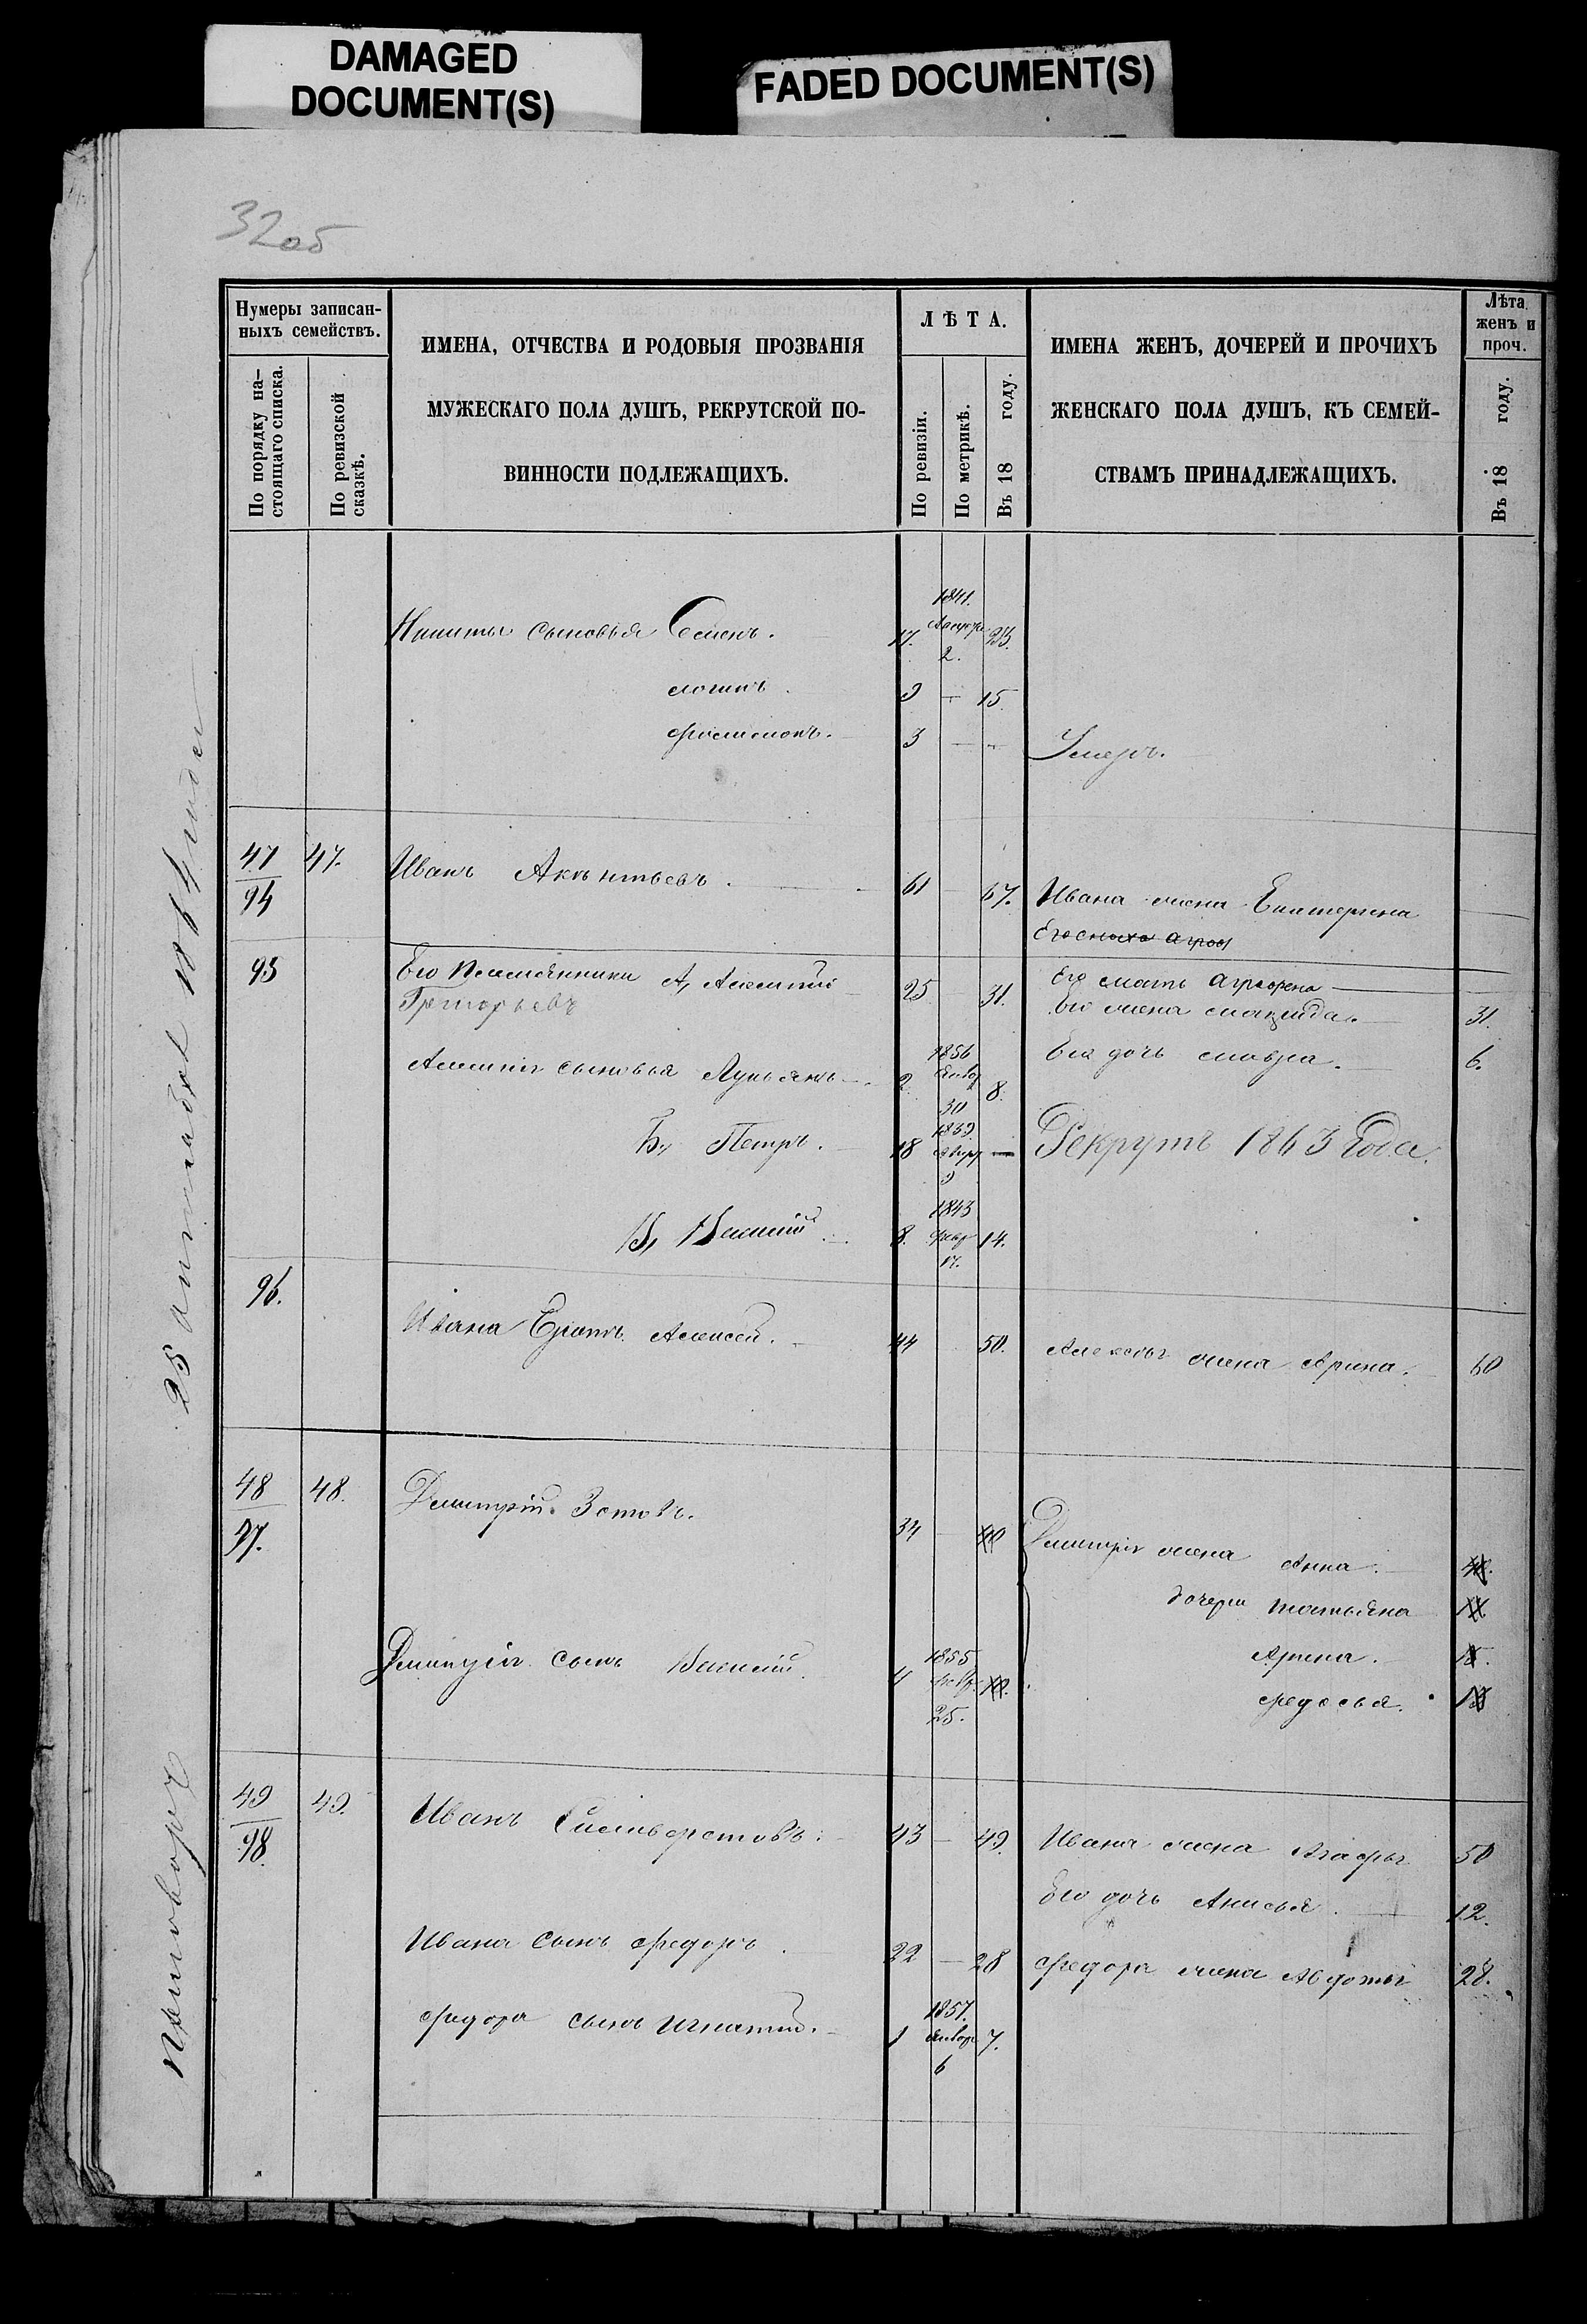 DAMAGED
DOCUMENT(S)
FADED DOCUMENT(S)
32об
Нумеры записан-
ныхъ семействъ.
По порядку на-
стоящаго списка.
По ревизской
сказкѣ.
ИМЕНА, ОТЧЕСТВА И РОДОВЫЯ ПРОЗВАНІЯ
МУЖЕСКАГО ПОЛА ДУШЪ, РЕКРУТСКОЙ ПО-
ВИННОСТИ ПОДЛЕЖАЩИХЪ.
ЛѢТА.
По ревизіи.
По метрикѣ.
Въ 18 году.
ИМЕНА ЖЕНЪ, ДОЧЕРЕЙ И ПРОЧИХЪ
ЖЕНСКАГО ПОЛА ДУШЪ, КЪ СЕМЕЙ-
СТВАМЪ ПРИНАДЛЕЖАЩИХЪ.
Лѣта
женъ и
проч.
Въ 18 году.
Никиты сыновья Семенъ. 17. 1841. 2. 23.
логинъ 9 — 15
3 — — Умеръ.
47 47. Иванъ Акѣнтьевъ. 61 67. Ивана жена Екатерина
94
Его сноха
95 Его племянники А, Алексѣй 25 31. Его мать Аграфена
Григорьевъ Его жена 31.
сыновья Лукьянъ 2 1856 Январ 30 8. Его дочь мавра. 6.
Б, Петръ. 18 9 — Рекрутъ 1863 Года.
В, Василій 8. 1843 Февр 17. 14.
96. Ивана братъ Алексей. 44 50. Алексѣя жена Арина. 60
48 48. Дмитрій Зотовъ. 34 40 Дмитрія жена Анна.
97. дочери татьяна
Арина.
Дмитрія сынъ Василій. 4 1855 25. федосья.
49 49. Иванъ Сильверстовъ. 43 — 49. Ивана жена Агафья 50
98. Его дочь Анисья 12.
Ивана сынъ федоръ 22 — 28 федора жена Авдотья 28.
федора сынъ игнатій. 1 1857. Январ 6 7.
25 1864 года